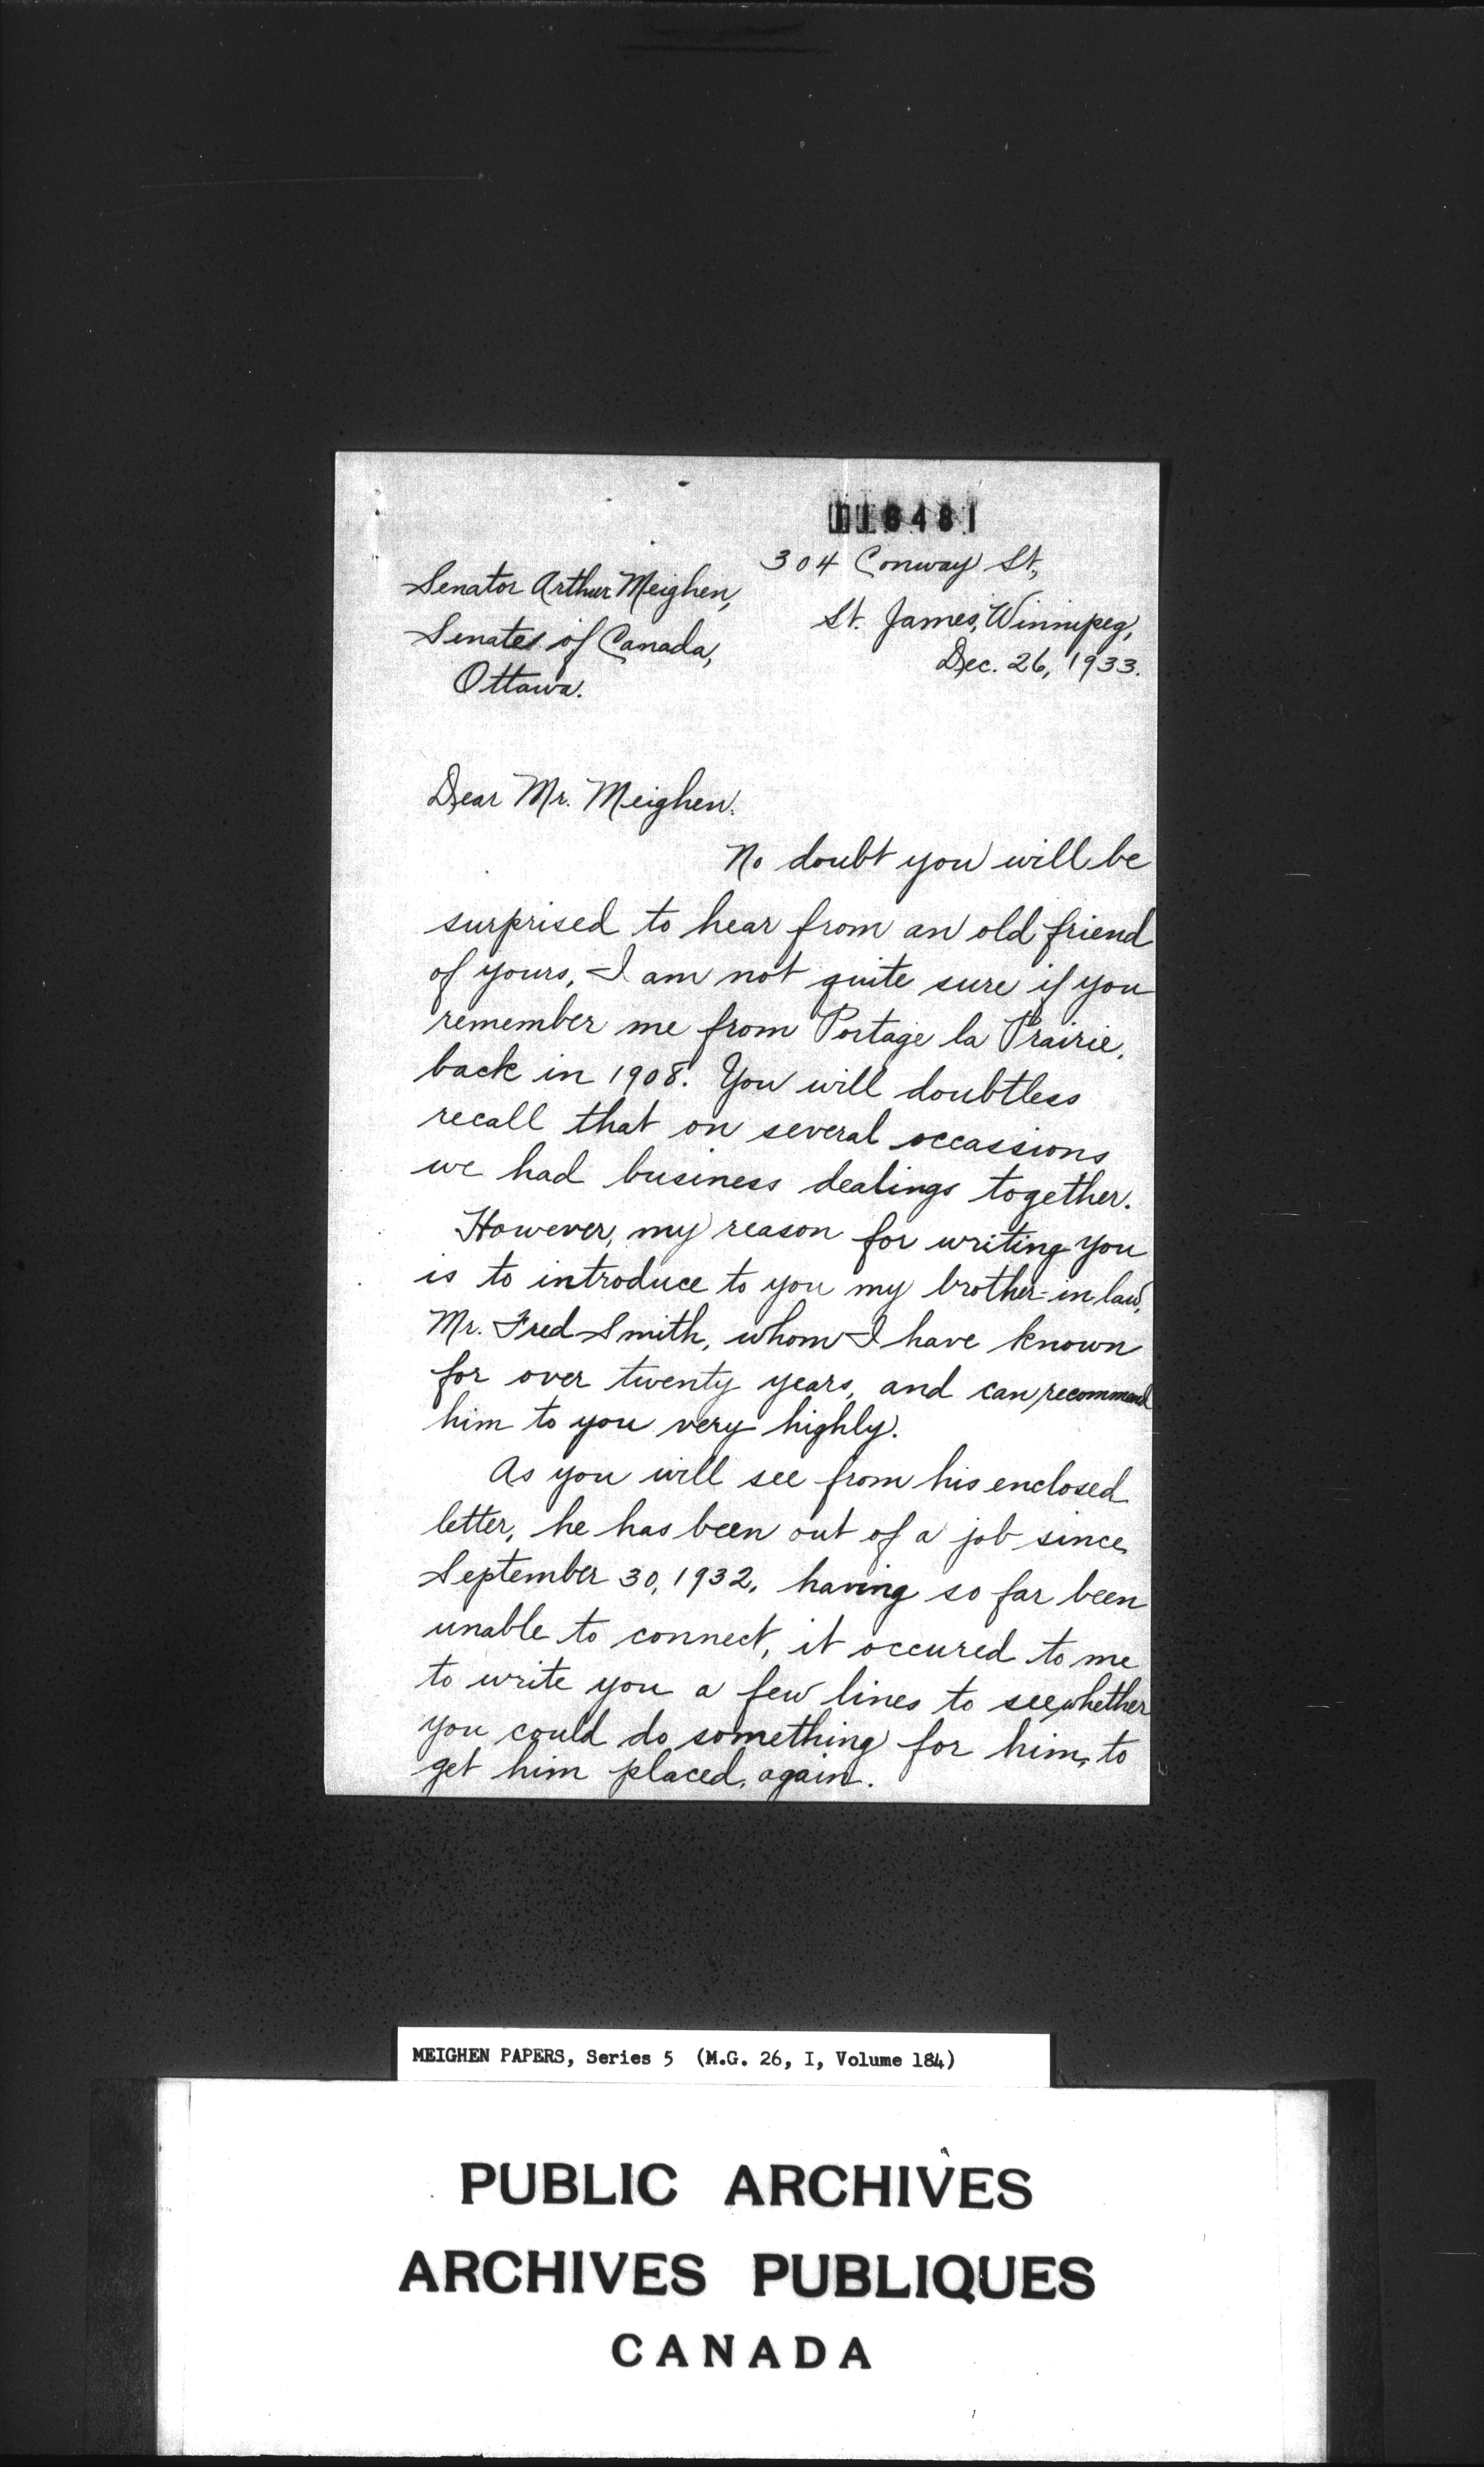 304 Conway St,
Senator Arthur Meighen,
St. James, Winnipeg,
Senate of Canada,
Dec. 26, 1933.
Ottawa.
Dear Mr. Meighen.
No doubt you will be
surprised to hear from an old friend
of yours, I am not quite sure if you
remember me from Portage la Prairie,
back in 1908. You will doubtless
recall that on several occassions
we had business dealings together.
However, my reason for writing you
is to introduce to you my brother-in law,
Mr. Fred Smith, whom I have known
for over twenty years, and can recommend
him to you very highly.
As you will see from his enclosed
letter, he has been out of a job since
September 30, 1932, having so far been
unable to connect, it occured to me
to write you a few lines to see whether
you could do something for him, to
get him placed, again.
MEIGHEN PAPERS, Series 5 (M.G. 26, I, Volume 184)
PUBLIC ARCHIVES
ARCHIVES PUBLIQUES
CANADA